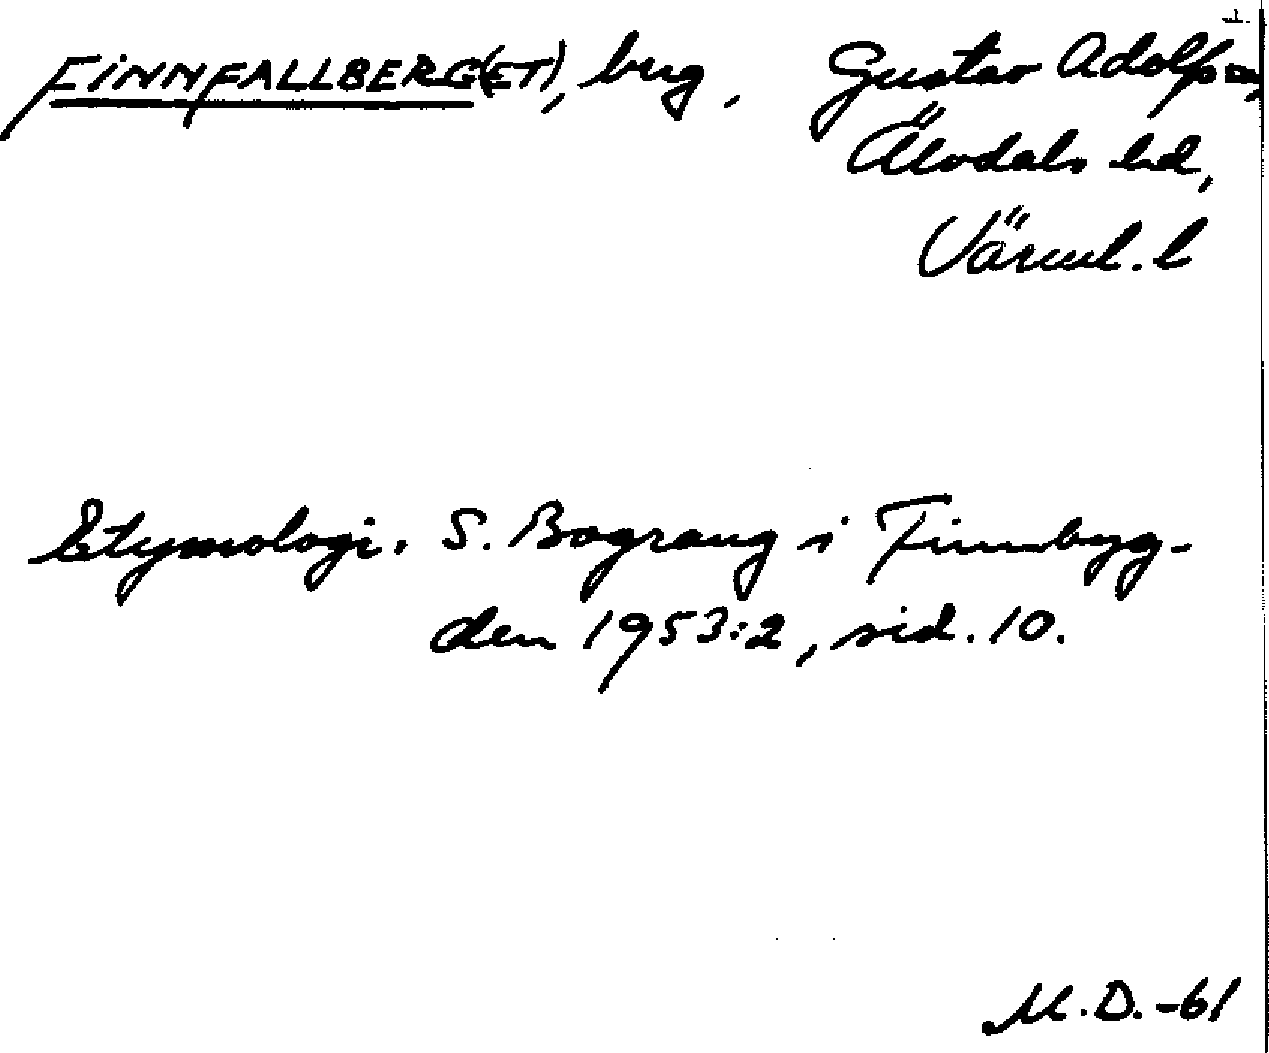 FINNFALLBERG(ET), brg, Gustav Adolfs sn,
Älvdals hd,
Värml. l
Etymologi. S. Bograng i Finnbyg-
den 1953:2, sid. 10.
M.D. -61